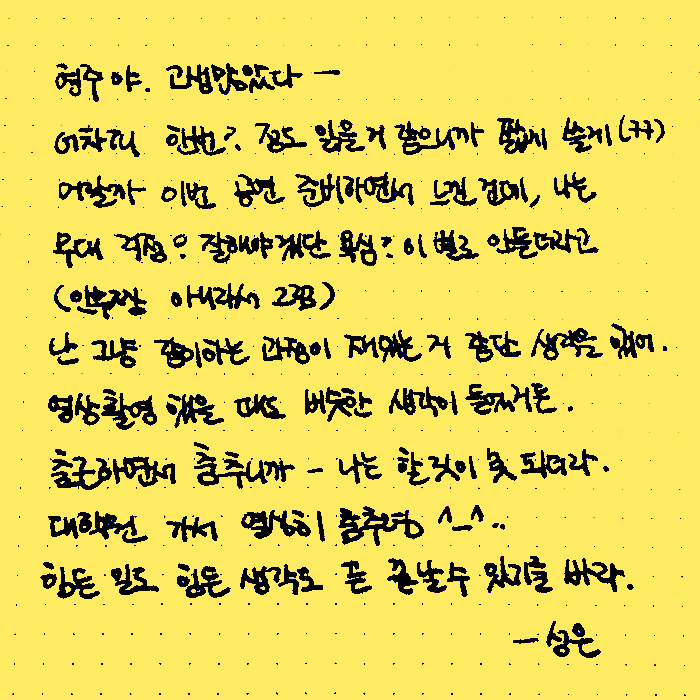 형주야. 고생많았다 ㅡ
어차피 한번? 정도 읽을거 같으니까 짧게 쓸게(ㅋㅋ)
머랄까 이번 공연 준비하면서 느낀건데, 나는
무대 걱정? 잘해야겠단 욕심? 이 별로 안들더라고
(안무짱 아니라서 그럼)
난 그냥 같이하는 과정이 재밌는거 같단 생각을 했어.
영상촬영 했을 때도 비슷한 생각이 들었거든.
출근하면서 춤추니까 - 나는 할 것이 못 되더라.
대학원 가서 열심히 춤추렴 ^_^..
힘든 일도 힘든 생각도 곧 끝날 수 있기를 바라.
- 성은